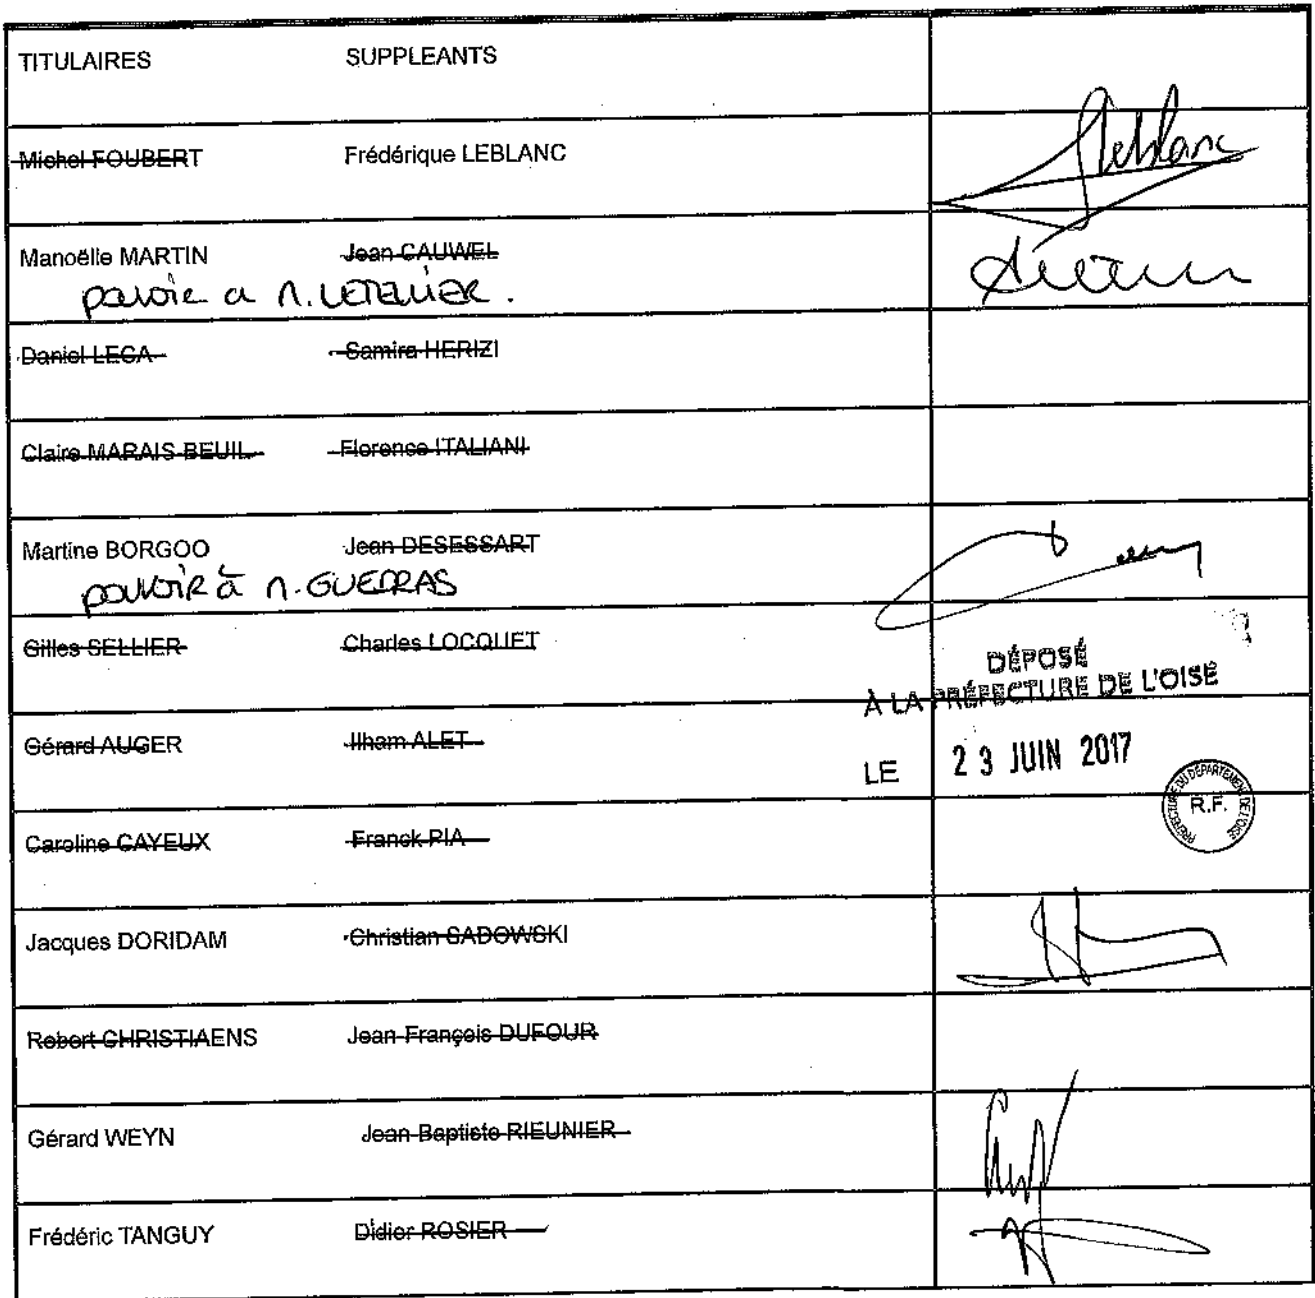 TITULAIRES SUPPLEANTS
Michel FOUBERT Frédérique LEBLANC
Leblanc
Manoëlle MARTIN Jean CAUWEL
pouvoir a M. LETELLIER.
Daniel LECA Samira HERIZI
Claire MARAIS-BEUIL Florence ITALIANI
Martine BORGOO Jean DESESSART
pouvoir à M. GUERRAS
Gilles SELLIER Charles LOCQUET
DÉPOSÉ
À LA PRÉFECTURE DE L'OISE
Gérard AUGER Ilham ALET
LE 23 JUIN 2017
PRÉFECTURE DU DÉPARTEMENT DE L'OISE
R.F.
Caroline CAYEUX Franck PIA
Jacques DORIDAM Christian SADOWSKI
Robert CHRISTIAENS Jean-François DUFOUR
Gérard WEYN Jean-Baptiste RIEUNIER
Frédéric TANGUY Didier ROSIER